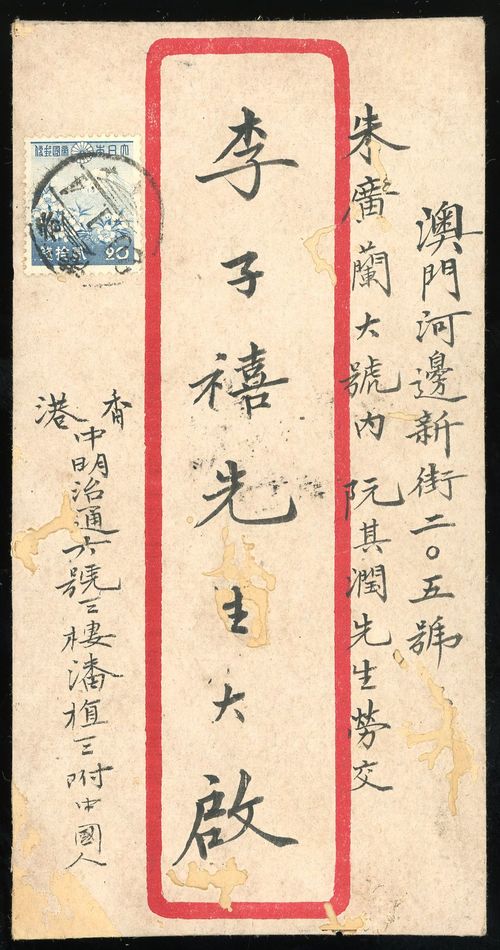 澳門河邊新街二〇五號
朱廣蘭大號內 阮其潤先生勞交
李子禧先生大啟
香港
中明治通六號三樓潘植三附中國人
大日本帝國郵便
貳拾錢
20